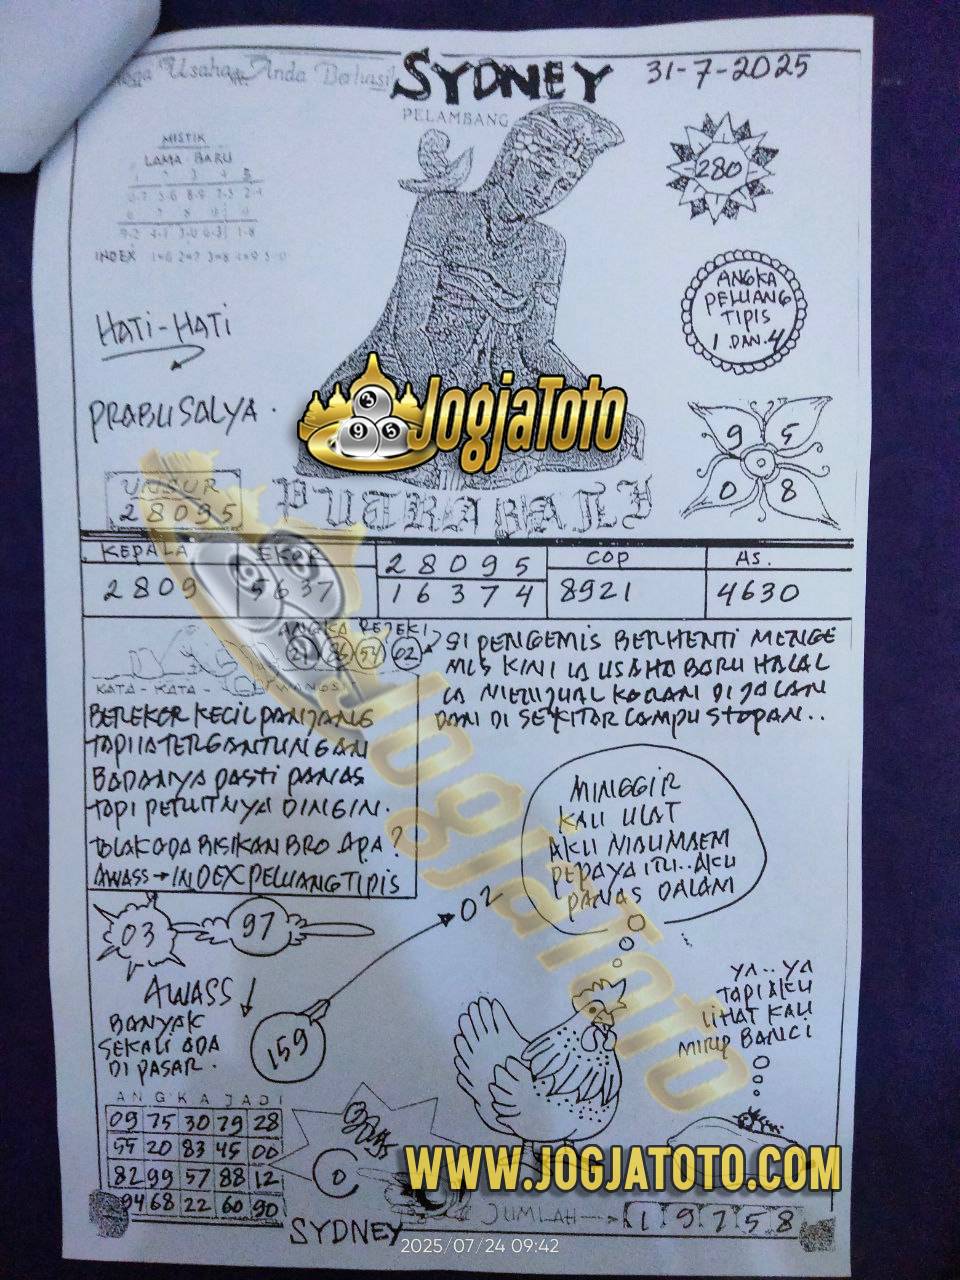 Usaha Anda Berhasil
SYDNEY
31-7-2025
PELAMBANG
MISTIK
LAMA BARU
280
INDEX
ANGKA
PELUANG
TIPIS
1 DAN 4
HATI-HATI
PRABU SALYA.
JogjaToto
9 5
0 8
UNSUR
28095
PUTRA BALI
KEPALA
EKOR
28095
COP
AS.
2809
5637
16374
8921
4630
ANGKA REJEKI
21 86 54 02
KATA - KATA - WANGSIT
SI PENGEMIS BERHENTI MENGE
MIS KINI IA USAHA BARU HALAL
IA MENJUAL KORAN DI JALAN
DAN DI SEKITAR LAMPU STOPAN..
BEREKOR KECIL PANJANG
TAPI IA TERGANTUNGAN
BADANYA PASTI PANAS
TAPI PERUTNYA DINGIN.
TOLAK ADA BISIKAN BRO APA?
AWASS → INDEX PELUANG TIPIS
MINGGIR
KAU ULAT
AKU MAU MAEM
PEPAYA ITU..AKU
PANAS DALAM
03
97
02
AWASS
BANYAK
SEKALI ADA
DI PASAR.
159
YA..YA
TAPI AKU
LIHAT KAU
MIRIP BANCI
JogjaToto
ANGKA JADI
09 75 30 79 28
59 20 83 45 00
82 99 57 88 12
94 68 22 60 90
0
WWW.JOGJATOTO.COM
JUMLAH → 19758
SYDNEY
2025/07/24 09:42